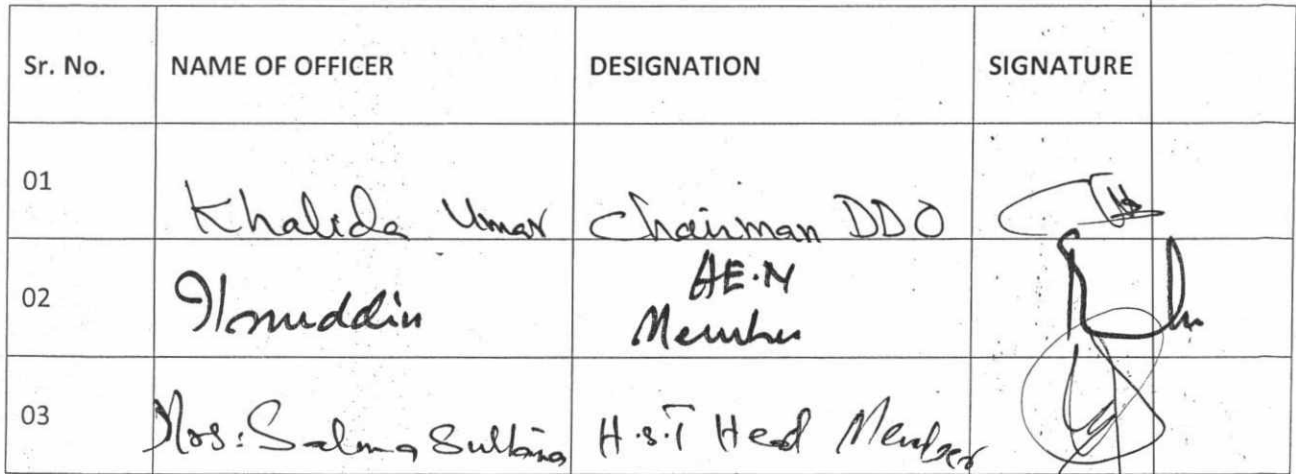 Sr. No. NAME OF OFFICER DESIGNATION SIGNATURE
01 Khalida Umar Chairman DDO
02 A.E.N
Member
03 Mrs: Salma Sultana H.S.T Head Member